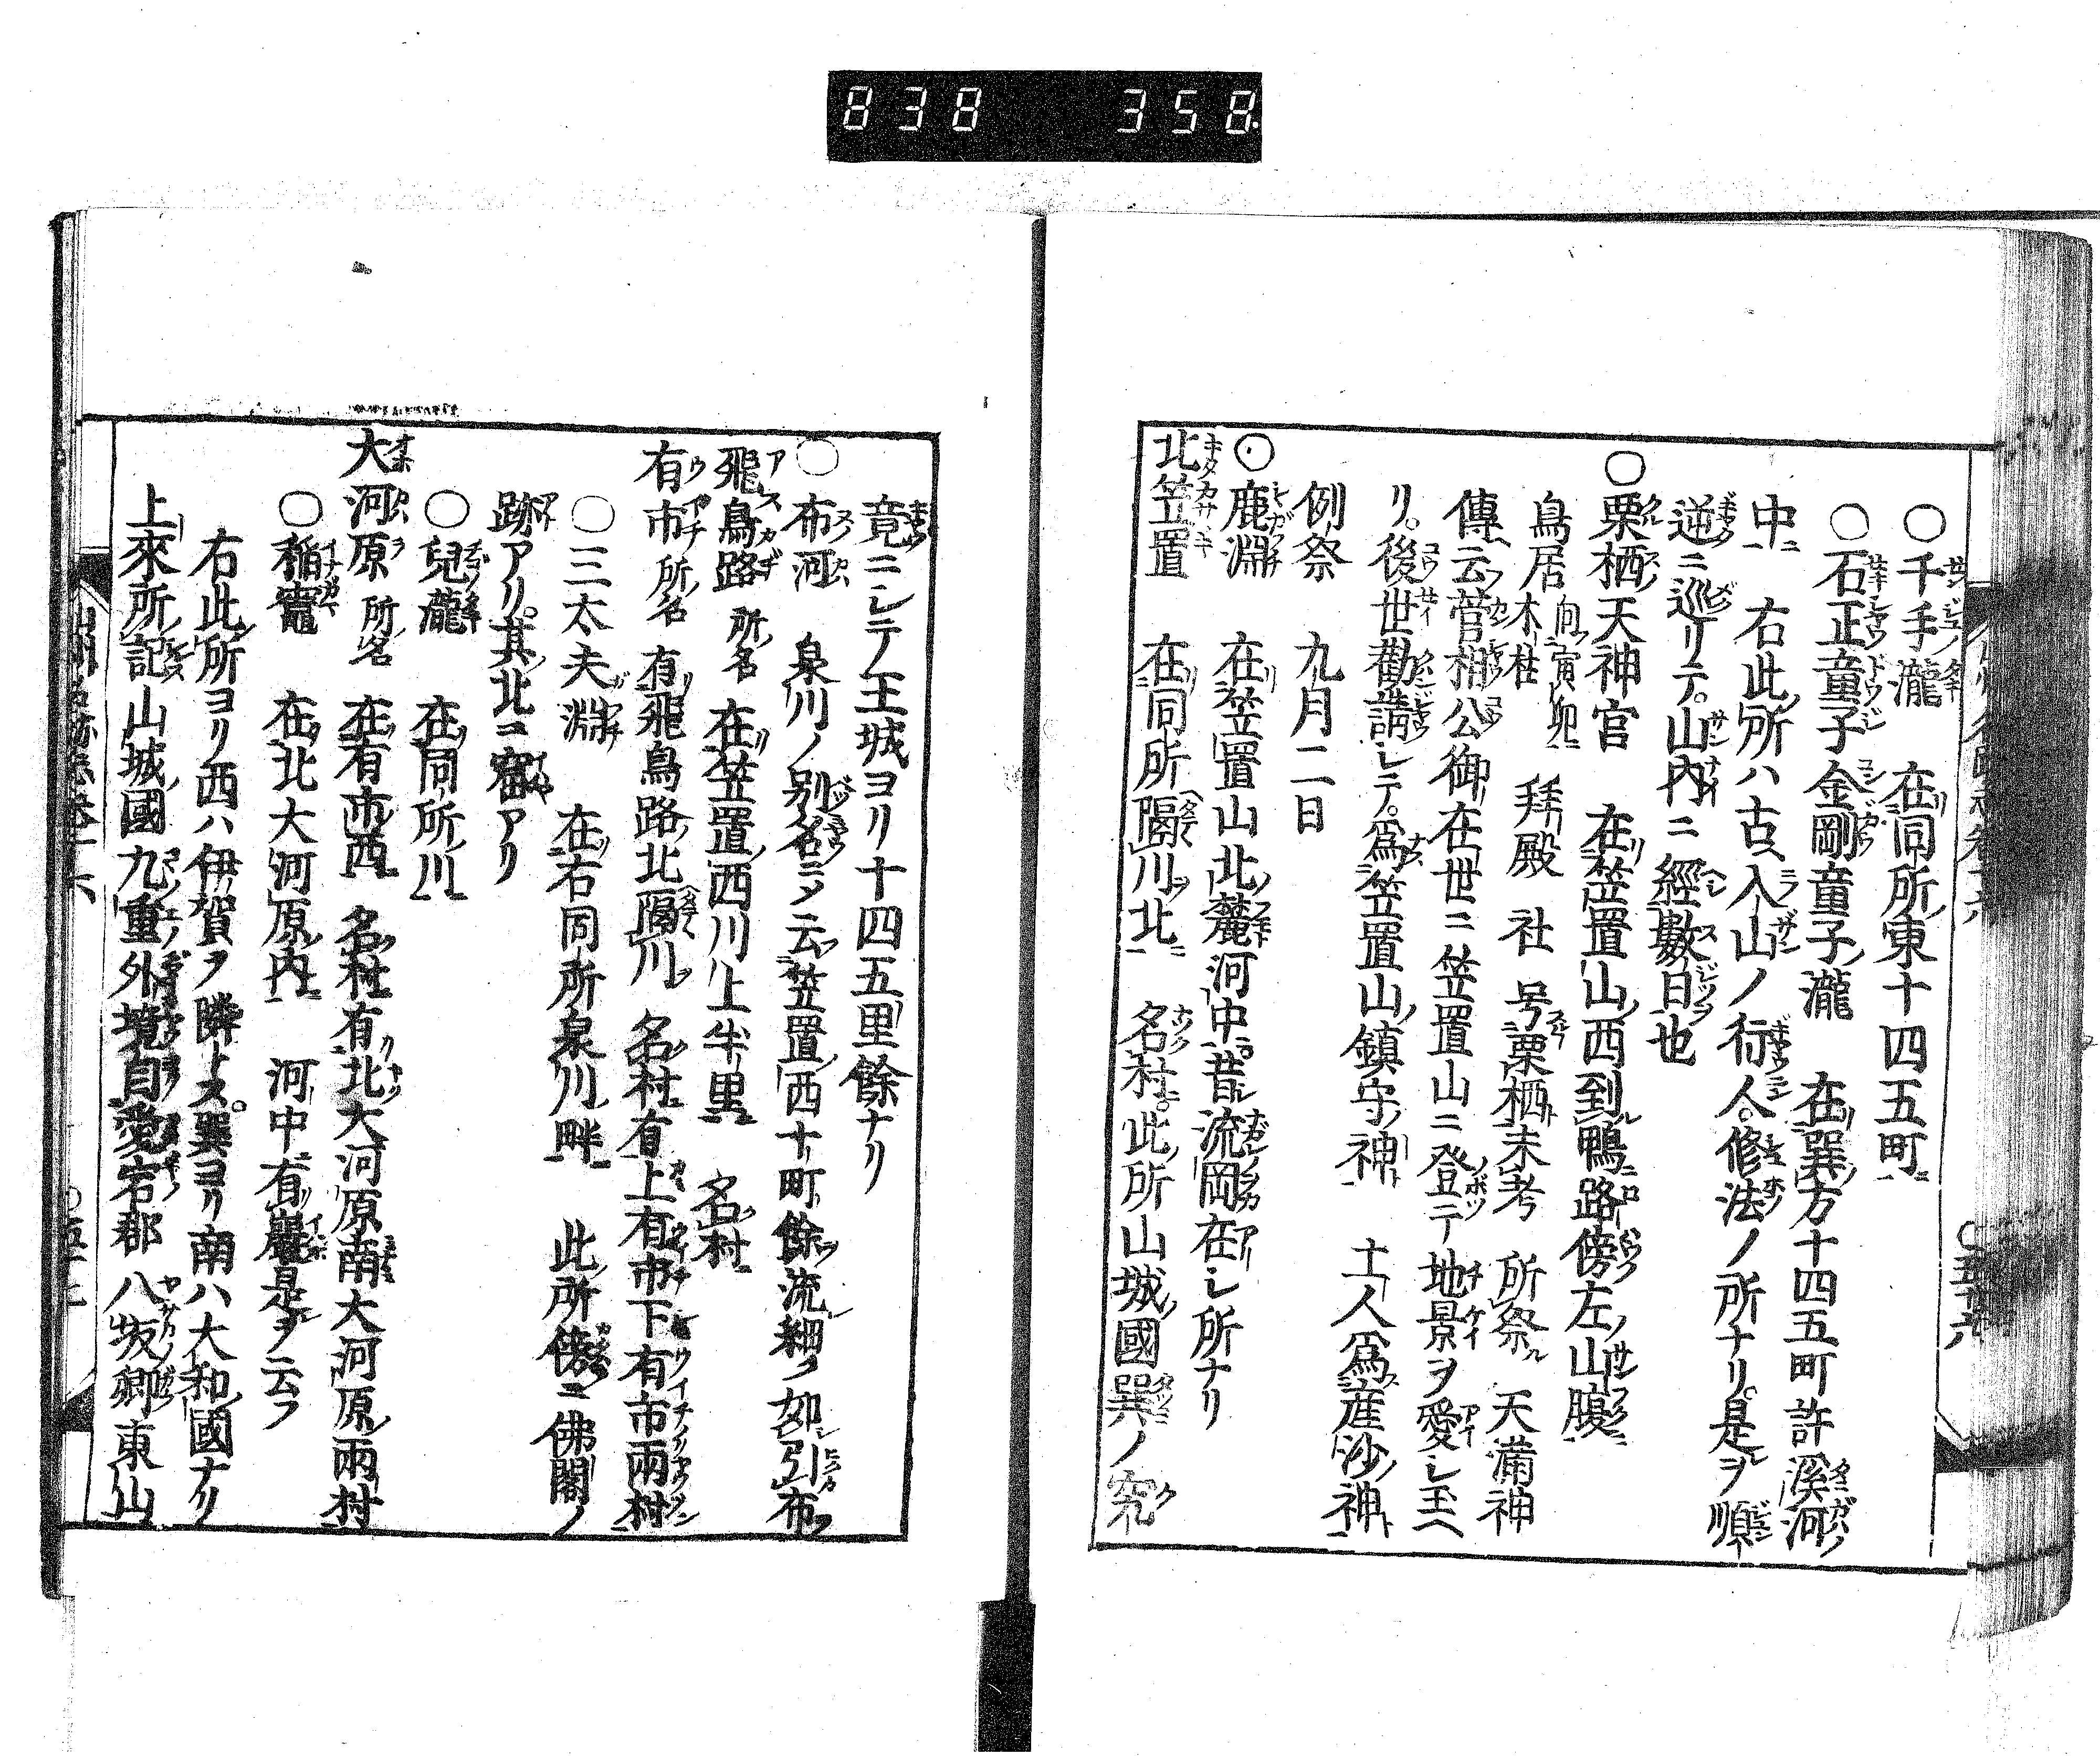 838 358
○千手瀧 在同所東十四五町
○石正童子金剛童子瀧 在巽方十四五町許溪河
中 右此所ハ古入山ノ行人修法ノ所ナリ是ヲ順
逆ニ巡リテ山內ニ經數日也
○栗栖天神宮 在笠置山西到鴨路傍左山腹
鳥居 向寅卯 木柱 拜殿 社 号栗栖未考 所祭 天滿神
傳云菅相公御在世ニ笠置山ニ登テ地景ヲ愛シ玉ヘ
リ後世勸請シテ爲笠置山鎮守神 土人爲產沙神
例祭 九月二日
○鹿淵 在笠置山北麓河中昔流岡在シ所ナリ
北笠置 在同所隔川北 名村此所山城國巽ノ究
竟ニシテ王城ヨリ十四五里餘ナリ
○布河 泉川ノ別名ニメ云笠置西十町餘流細ク如引布
飛鳥路 所名 在笠置西川上半里 名村
有市 所名 有飛鳥路北隔川 名村有上有市下有市兩村
○三太夫淵 在右同所泉川畔 此所傍ニ佛閣ノ
跡アリ其北ニ窟アリ
○兒瀧 在同所川
大河原 所名 在有市西 名村有北大河原南大河原兩村
○稲竈 在北大河原內 河中有巖是ヲ云フ
右此所ヨリ西ハ伊賀ヲ隣トス巽ヨリ南ハ大和國ナリ
上來所記山城國九重外境自愛宕郡八坂鄉東山